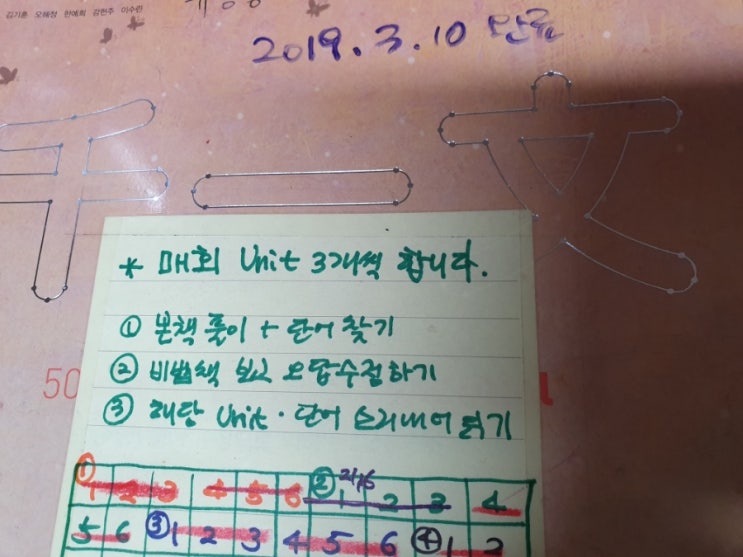 김기훈 오혜정 한예희 강현주 이수란
2019.3.10 완료
千一文
* 매회 Unit 3개씩 합니다.
① 본책 풀이 + 단어 찾기
② 비법책 보고 오답수정하기
③ 해당 Unit · 단어 소리내어 읽기
50
① 1 2 3 4 5 6 ② 2/15 1 2 3 4
5 6 ③ 1 2 3 4 5 6 ④ 1 2